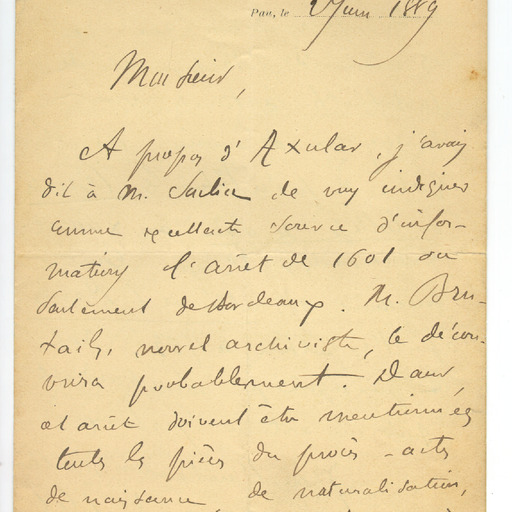 Pau, le 2 Juin 1889
Monsieur,
A propos d'Axular, j'avais
dit à M. de vous indiquer
comme excellente source d'infor-
mations l'arrêt de 1601 du
Parlement de Bordeaux. M. Bru-
tails, nouvel archiviste, le décou-
vrira probablement. Dans
cet arrêt doivent être mentionnées
toutes les pièces du procès - actes
de naissance, de naturalisation,